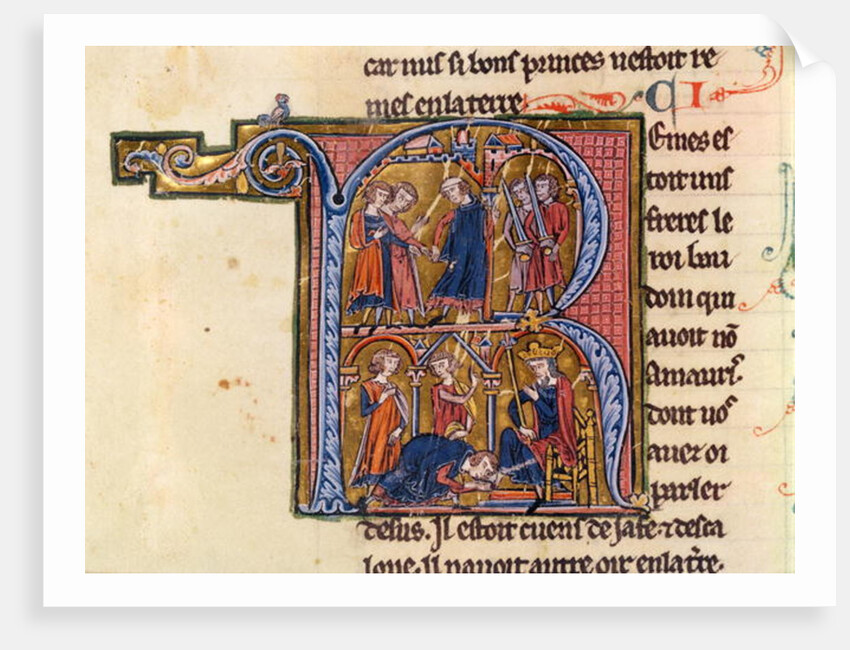 car nus si bons princes nestoit re
mes enlaterre
CI
Remes es
toit uns
freres le
roi bau
doin qui
avoit nõ
Amauri.
dont uoˢ
aues oi
parler
desus. Il estoit cuens de jafe ⁊ desca
lone. Il nauoit autre oir enlat̃re.